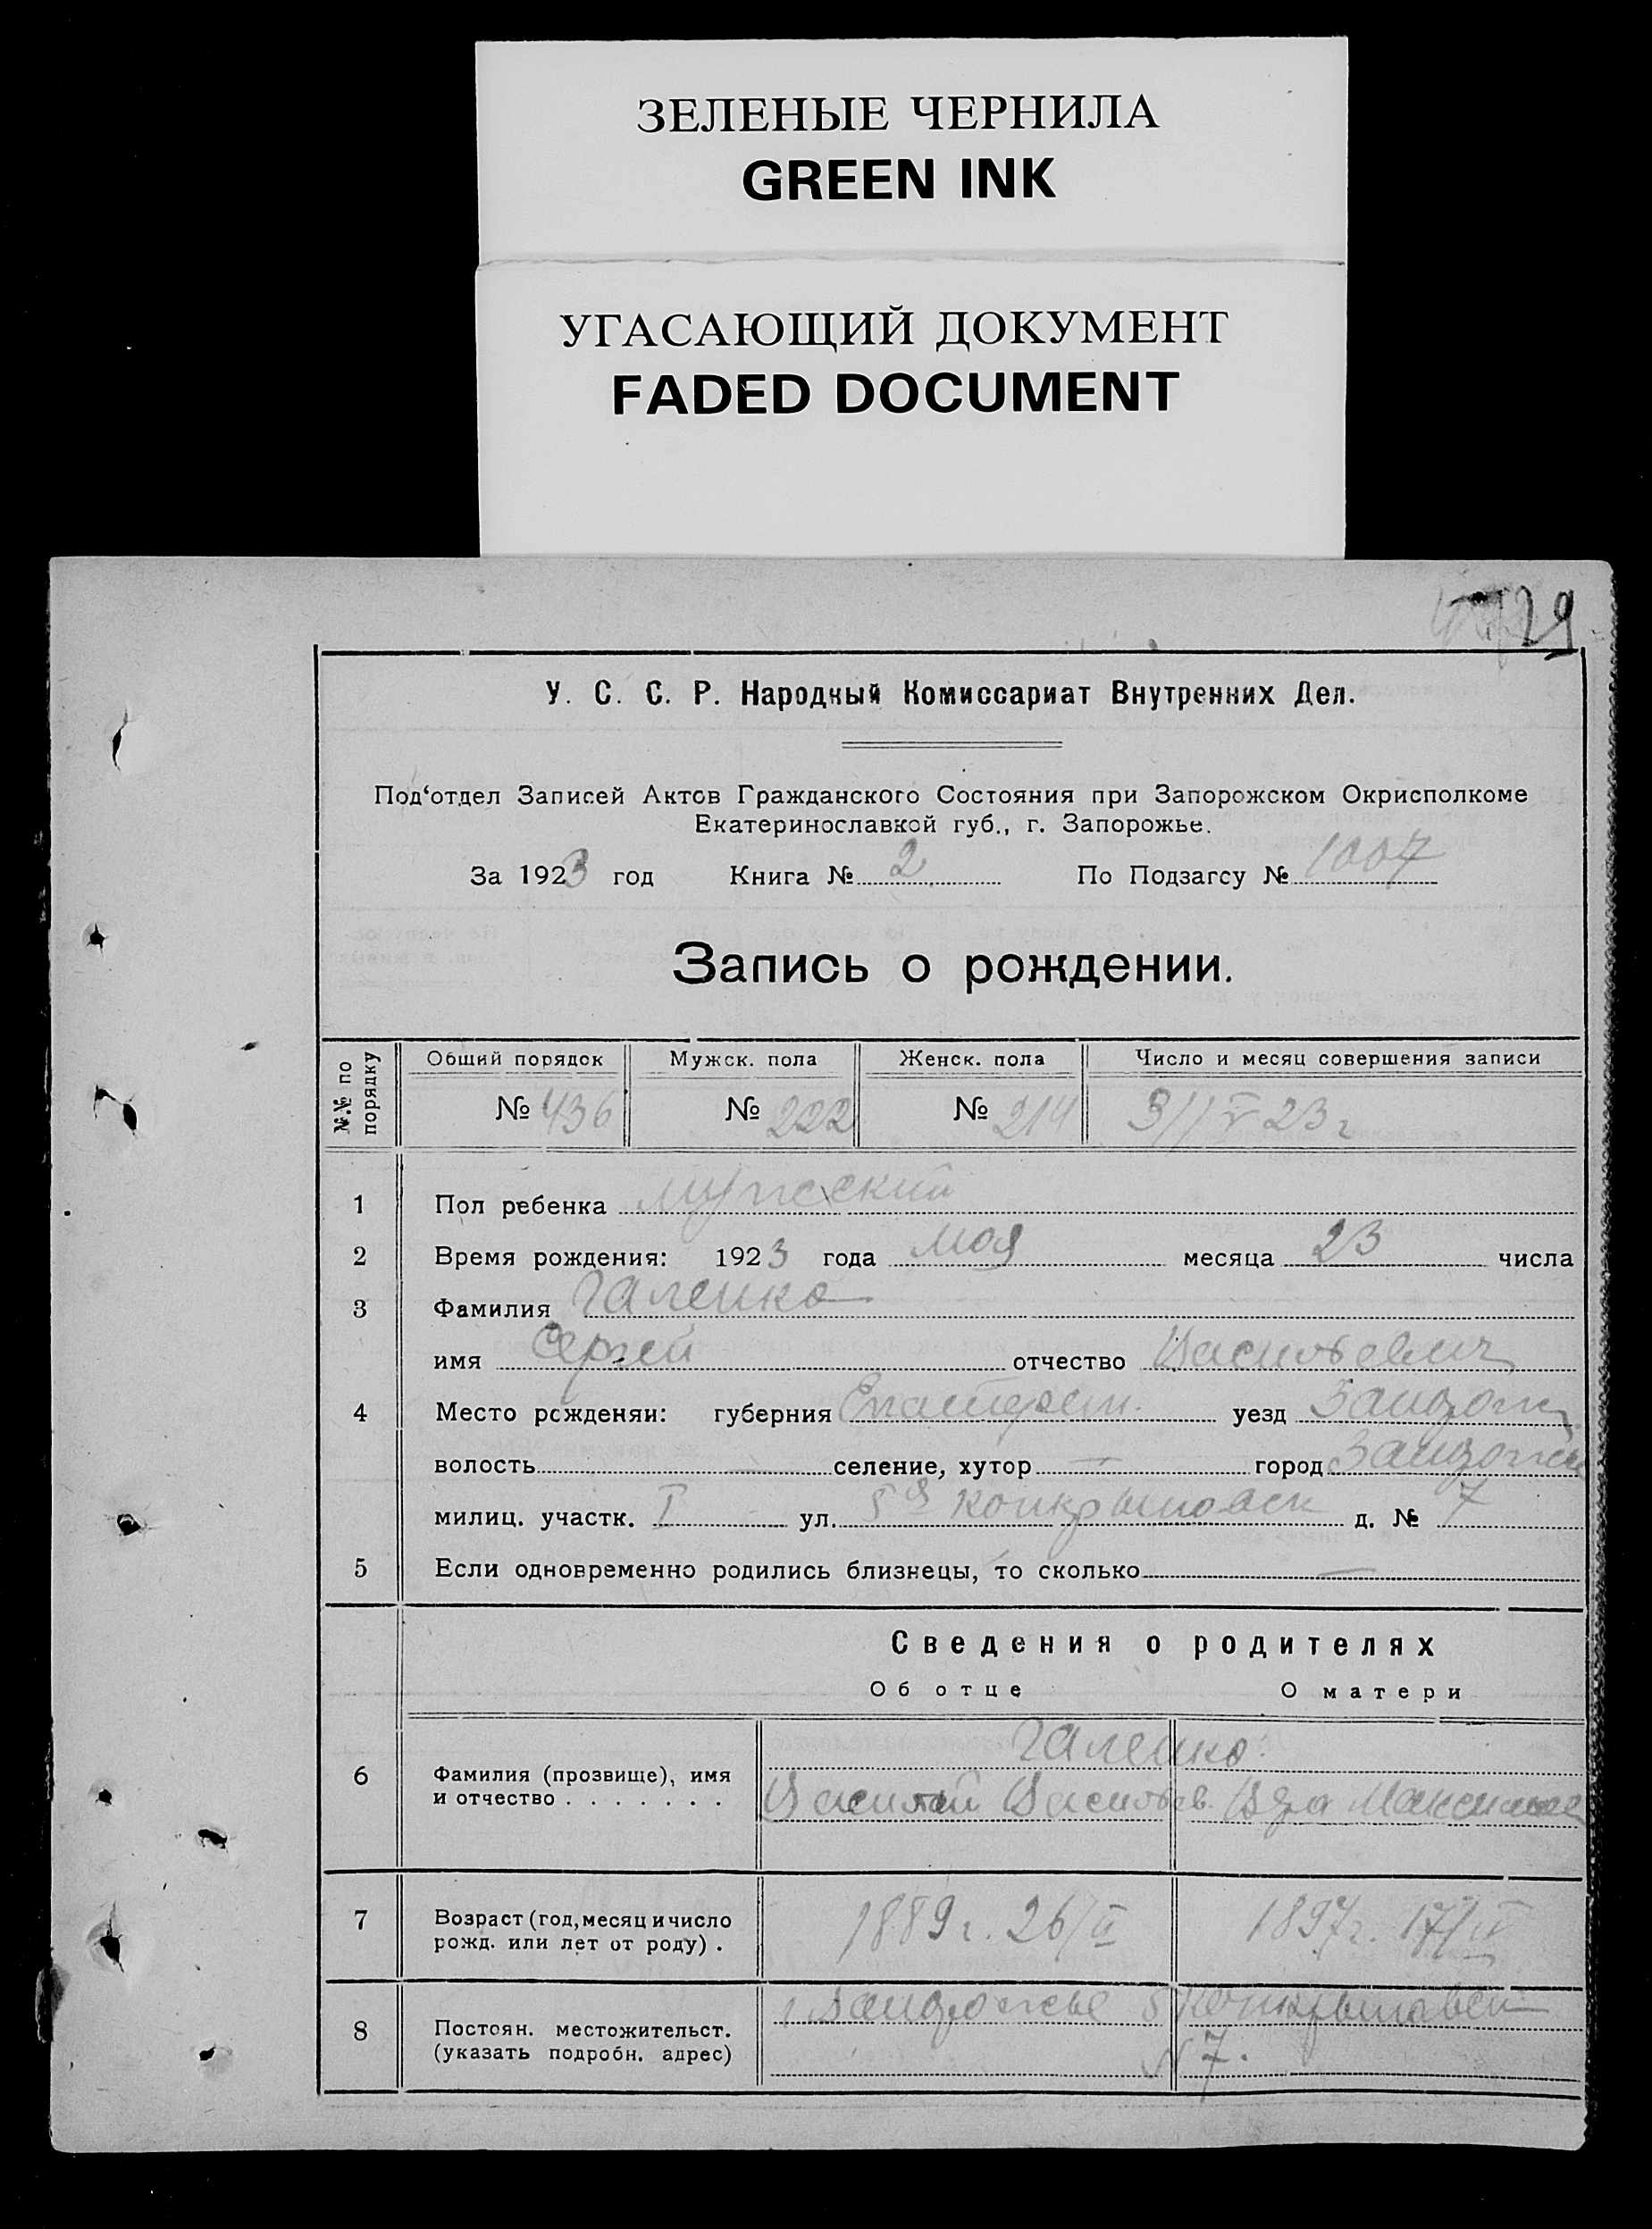 ЗЕЛЕНЫЕ ЧЕРНИЛА
GREEN INK
УГАСАЮЩИЙ ДОКУМЕНТ
FADED DOCUMENT
29
У. С. С. Р. Народный Комиссариат Внутренних Дел.
Под‘отдел Записей Актов Гражданского Состояния при Запорожском Окрисполкоме
Екатеринославкой губ., г. Запорожье.
За 1923 год Книга № 2 По Подзагсу № 1007
Запись о рождении.
№№ по порядку Общий порядок Мужск. пола Женск. пола Число и месяц совершения записи
№ 436 № 222 № 214 31/V 23 г
1 Пол ребенка мужский
2 Время рождения: 1923 года мая месяца 23 числа
3 Фамилия Галенко
имя Сергей отчество Васильевич
4 Место рожденяи: губерния уезд Запорож.
волость — селение, хутор — город Запорожье
милиц. участк. I ул. 5я д. № 7
5 Если одновременно родились близнецы, то сколько —
Сведения о родителях
Об отце О матери
Галенко
6 Фамилия (прозвище), имя
и отчество . . . . . . . Василий Васильев. Вера Максимов
7 Возраст (год, месяц и число 1889 г. 26/II 1897 г. 17/IV
рожд. или лет от роду) .
г. Запорожье 5
8 Постоян. местожительст.
(указать подробн. адрес) № 7.